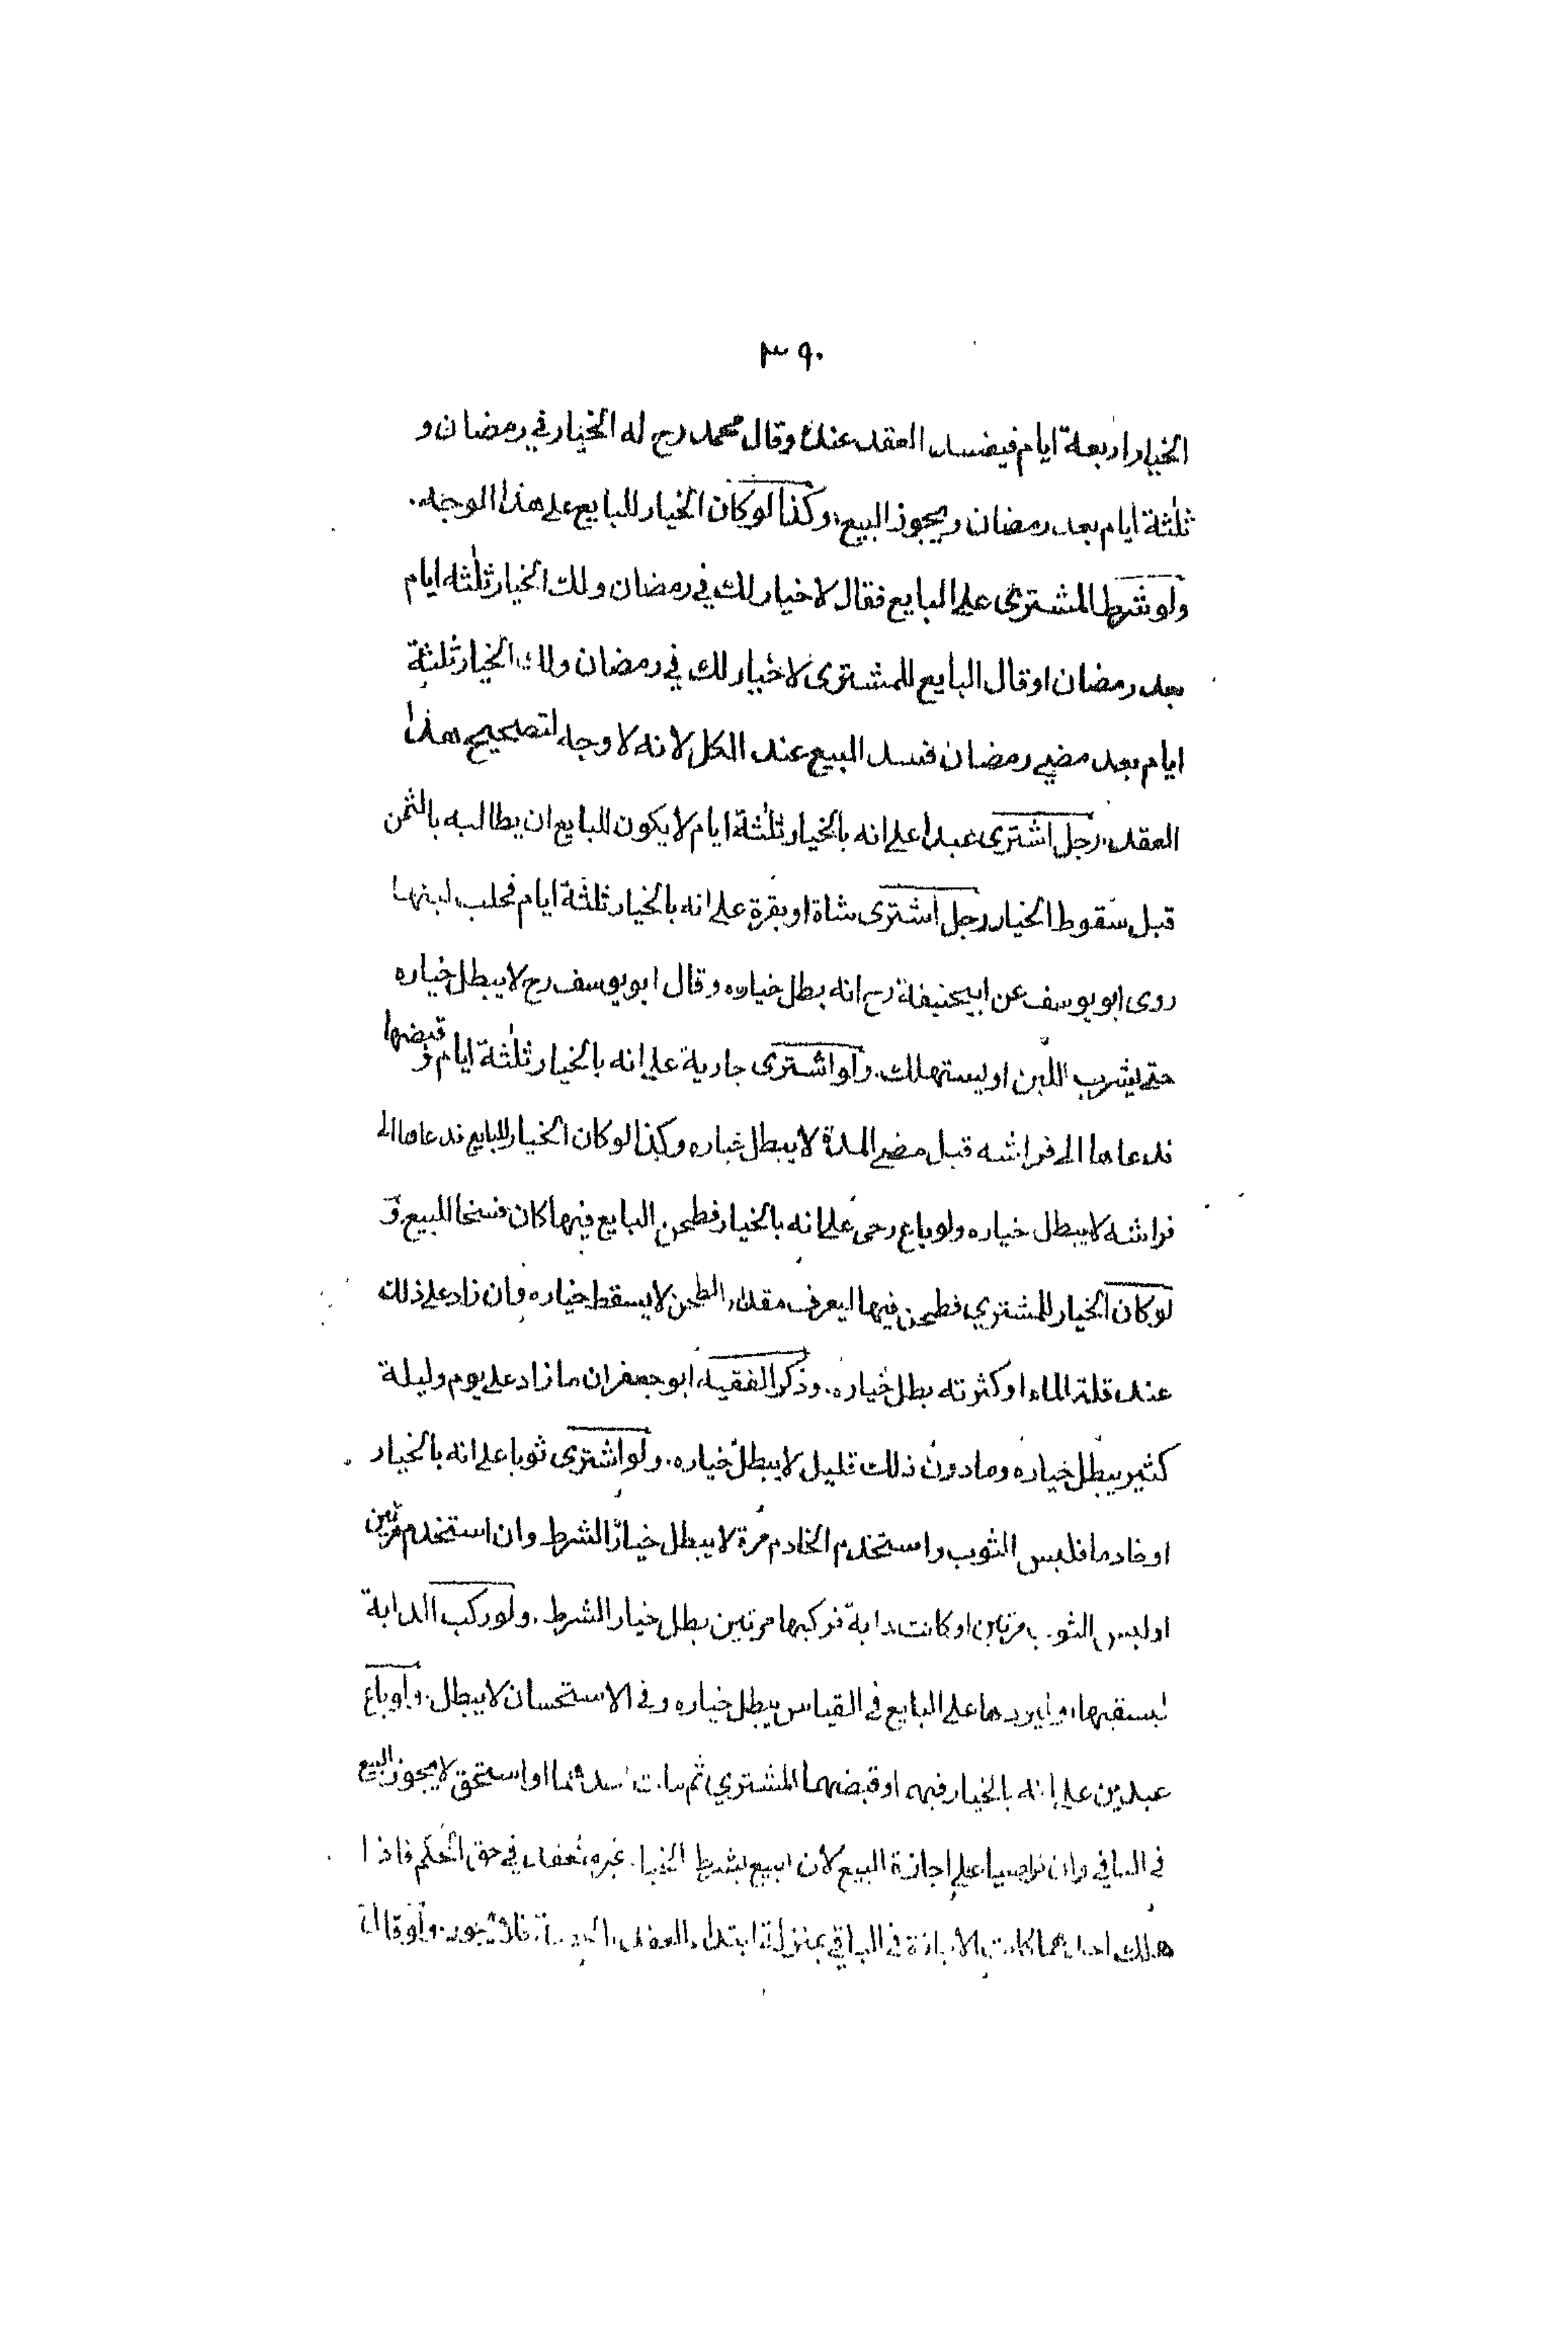 ٣٩٠
الخيار اربعة ايام فيفسد العقد عنده وقال محمد رح له الخيار في رمضان و
ثلثة ايام بعد رمضان ويجوز البيع، وكذا لو كان الخيار للبايع على هذا الوجه.
ولو شرط المشترى على البايع فقال لا خيار لك في رمضان ولك الخيار ثلثة ايام
بعد رمضان او قال البايع للمشترى لا خيار لك في رمضان ولك الخيار ثلثة
ايام بعد مضي رمضان فسد البيع عند الكل لانه لا وجه لتصحيح هذا
العقد. رجل اشترى عبدا على انه بالخيار ثلثة ايام لا يكون للبايع ان يطالبه بالثمن
قبل سقوط الخيار رجل اشترى شاة او بقرة على انه بالخيار ثلثة ايام فحلب لبنها
روى ابو يوسف عن ابيحنيفة رح انه بطل خياره وقال ابو يوسف رح لا يبطل خياره
حتى يشرب اللبن او يستهلك. ولو اشترى جارية على انه بالخيار ثلثة ايام و قبضها
فدعاها الى فراشه قبل مضي المدة لا يبطل خياره وكذا لو كان الخيار للبايع فدعاها الى
فراشه لا يبطل خياره ولو باع رحى على انه بالخيار فطحن البايع فيها كان فسخا للبيع و
لو كان الخيار للمشتري فطحن فيها ليعرف مقدار الطحن لا يسقط خياره وان زاد على ذلك
عند قلة الماء او كثرته بطل خياره. وذكر الفقيه ابو جعفر ان ما زاد على يوم وليلة
كثير يبطل خياره وما دون ذلك قليل لا يبطل خياره. ولو اشترى ثوبا على انه بالخيار
او خادما فلبس الثوب واستخدم الخادم مرة لا يبطل خيار الشرط وان استخدم مرتين
او لبس الثوب مرتين او كانت دابة فركبها مرتين بطل خيار الشرط. ولو ركب الدابة
ليسقيها او ليردها على البايع في القياس يبطل خياره وفي الاستحسان لا يبطل. ولو باع
عبدين على انه بالخيار فيهما وقبضهما المشتري ثم مات احدهما او استحق لا يجوز البيع
في الباقي وان تراضيا على اجازة البيع لان البيع بشرط الخيار غير منعقد في حق الحكم فاذا
هلك احدهما كانت الاجازة في الباقي بمنزلة ابتداء العقد فلا يجوز. ولو قال